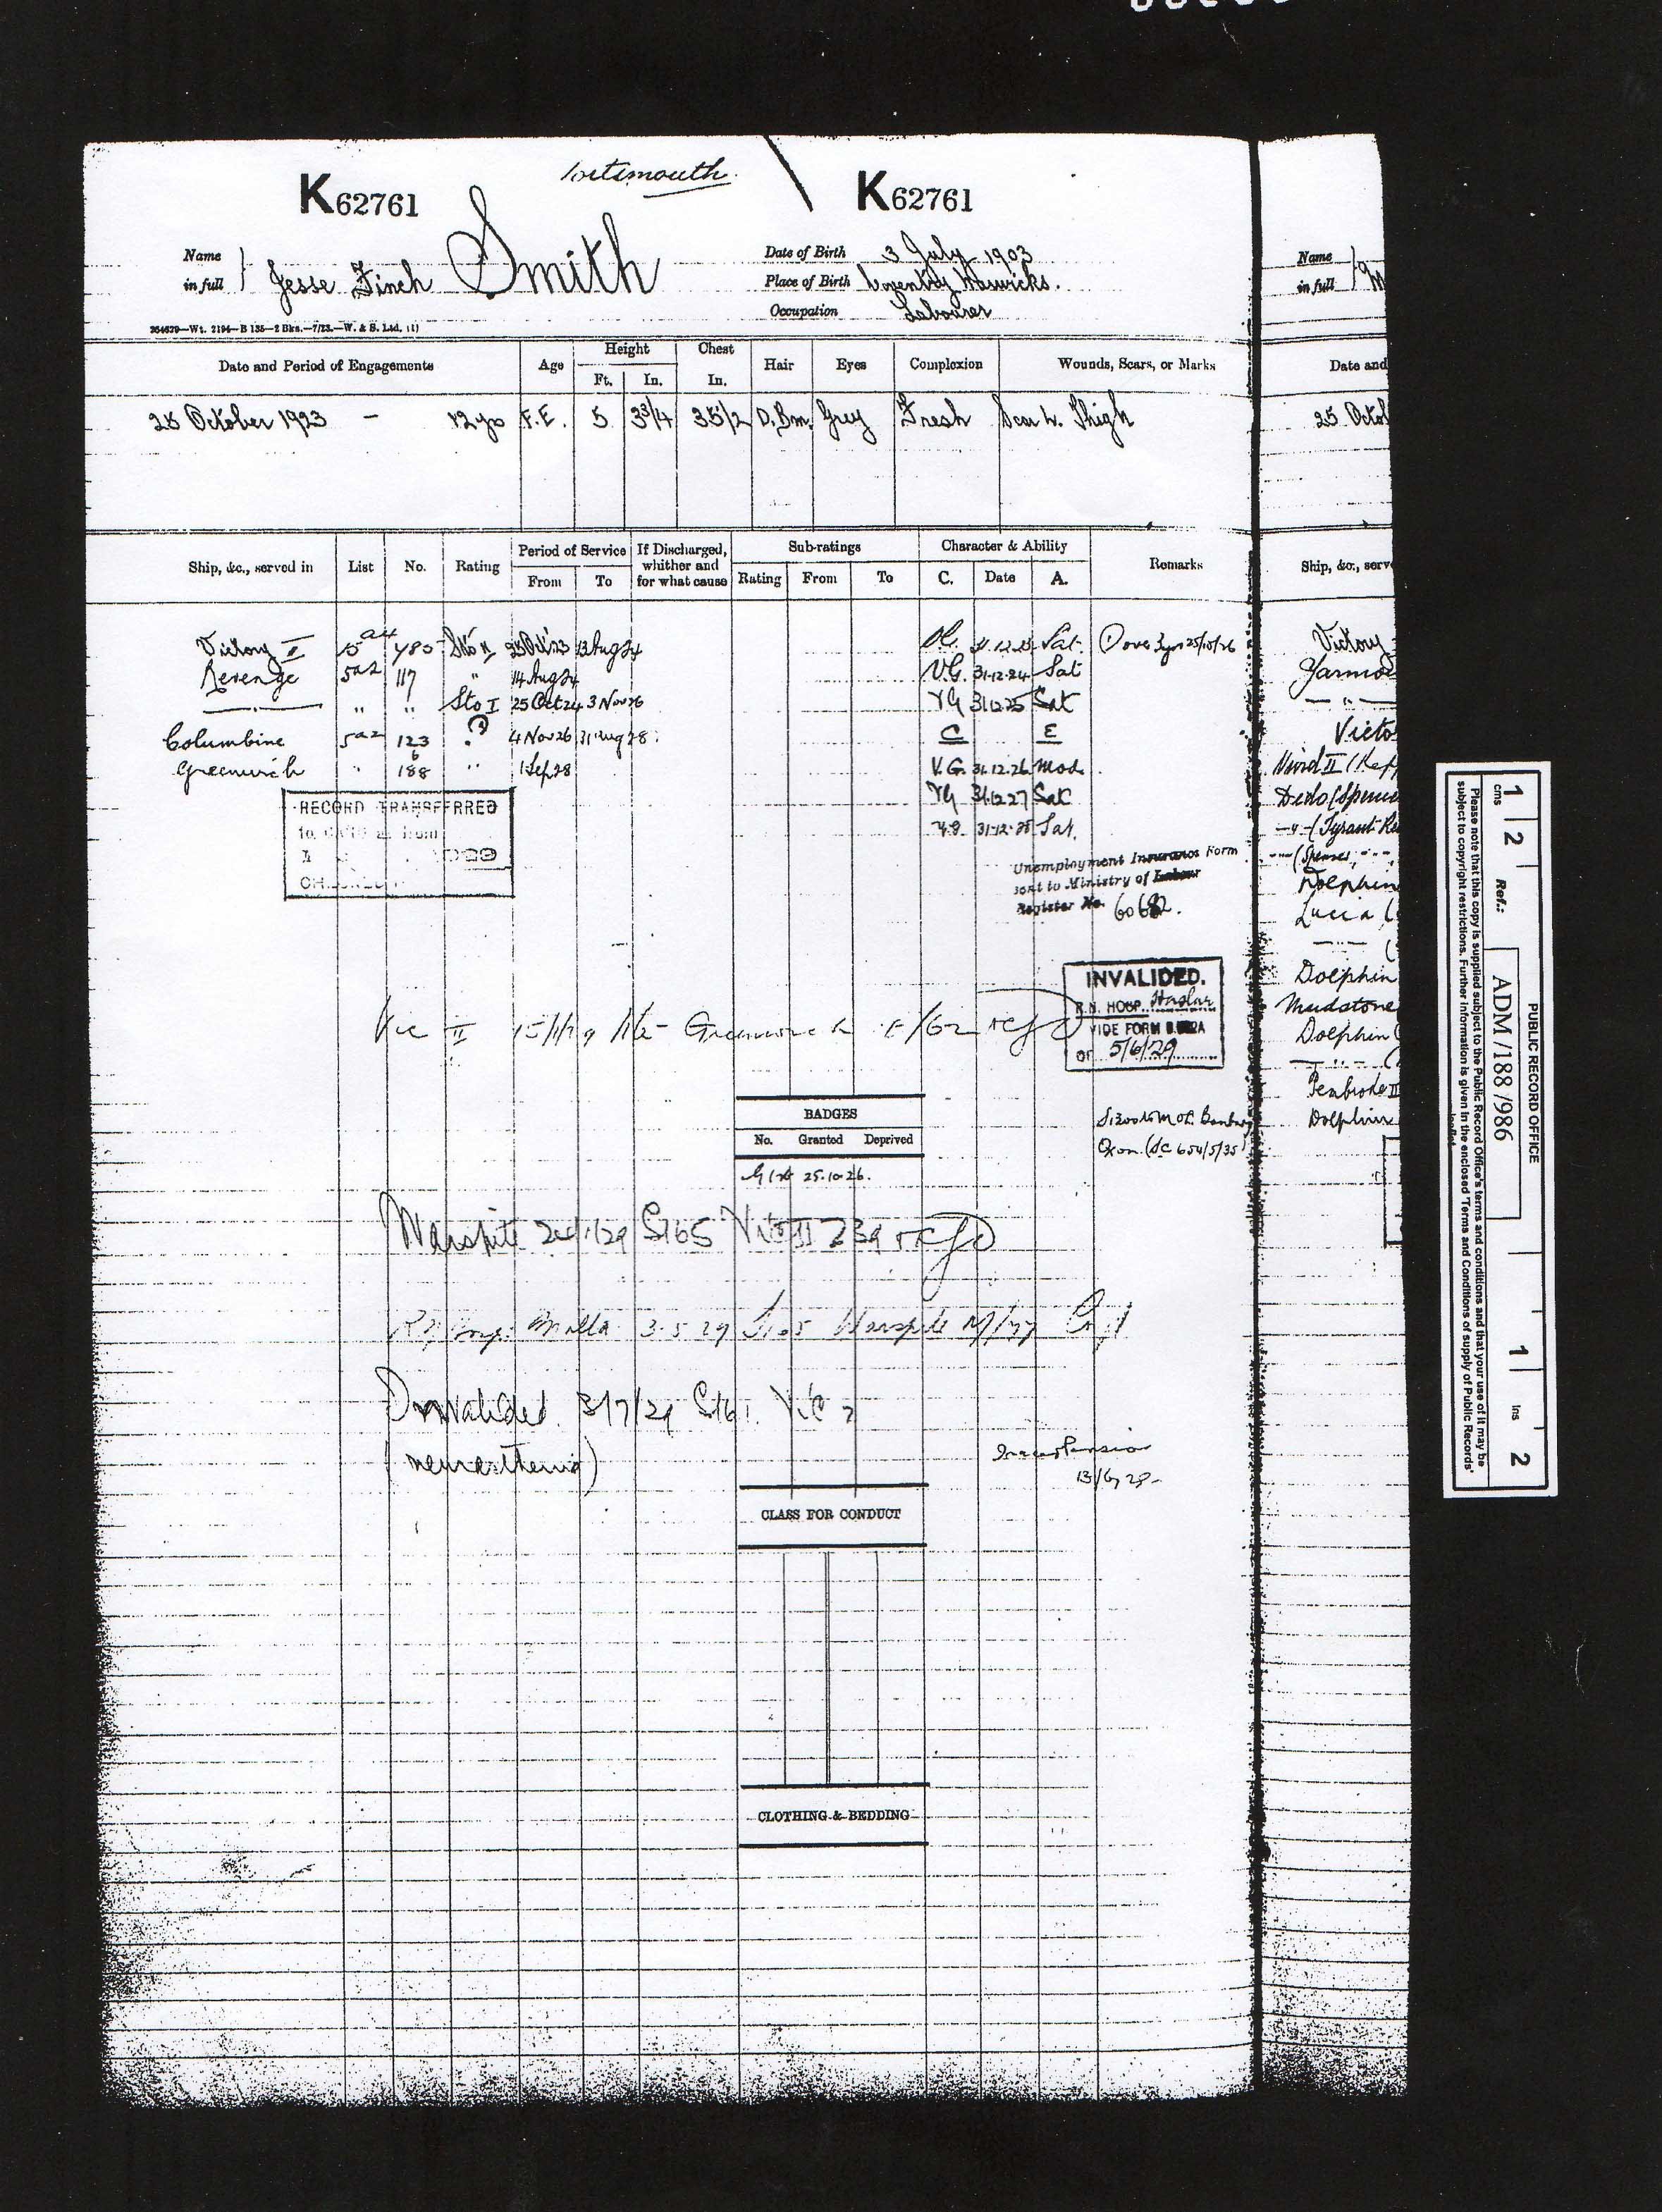 Portsmouth
K62761 K62761
Name in full Jesse Finch Smith
Date of Birth 3 July 1903
Place of Birth Coventry Warwicks.
Occupation Labourer
Date and Period of Engagements Age Height Ft. In. Chest In. Hair Eyes Complexion Wounds, Scars, or Marks
25 October 1923 - 12 yrs F.E. 5 3 3/4 35 1/2 D.Brn. Grey Fresh Scar L. Thigh
Ship, &c., served in List No. Rating Period of Service From To If Discharged, whither and for what cause Sub-ratings Rating From To Character & Ability C. Date A. Remarks
Victory II 15a4 Sto II 25 Oct 23 13 Aug 24 Sat.
Revenge 5a2 117 " 14 Aug 24 V.G. 31.12.24 Sat
" " Sto I 25 Oct 24 3 Nov 26 VG 31.12.25 Sat
Columbine 5a2 123 4 Nov 26 31 Aug 28. C E
Greenwich " 188 " 1 Sep 28 V.G. 31.12.26 Mod.
VG 31.12.27 Sat
V.G. 31.12.28 Sat.
RECORD TRANSFERRED
Unemployment Insurance Form
sent to Ministry of Labour
Register No. 60682.
INVALIDED.
R.N. HOSP. Haslar
VIDE FORM
of 5/6/29
Vic II 15/1/29 Greenwich
BADGES
No. Granted Deprived
G 1st 25.10.26.
Oxon.
Warspite S165 Vic II
Malta 3.5.29 S165 Warspite
Invalided 3/7/29 Vic 2
(neurasthenia)
CLASS FOR CONDUCT
CLOTHING & BEDDING
Name in full
Date and
25 Octob
Ship, &c., serv
Victory
Yarmou
Victo
Dolphin
Lucia
Dolphin
Dolphin
Pembroke II
Dolphin
PUBLIC RECORD OFFICE
1 2 cms Ref.: ADM/188/986 1 ins 2
Please note that this copy is supplied subject to the Public Record Office's terms and conditions and that your use of it may be
subject to copyright restrictions. Further information is given in the enclosed 'Terms and Conditions of supply of Public Records'
leaflet